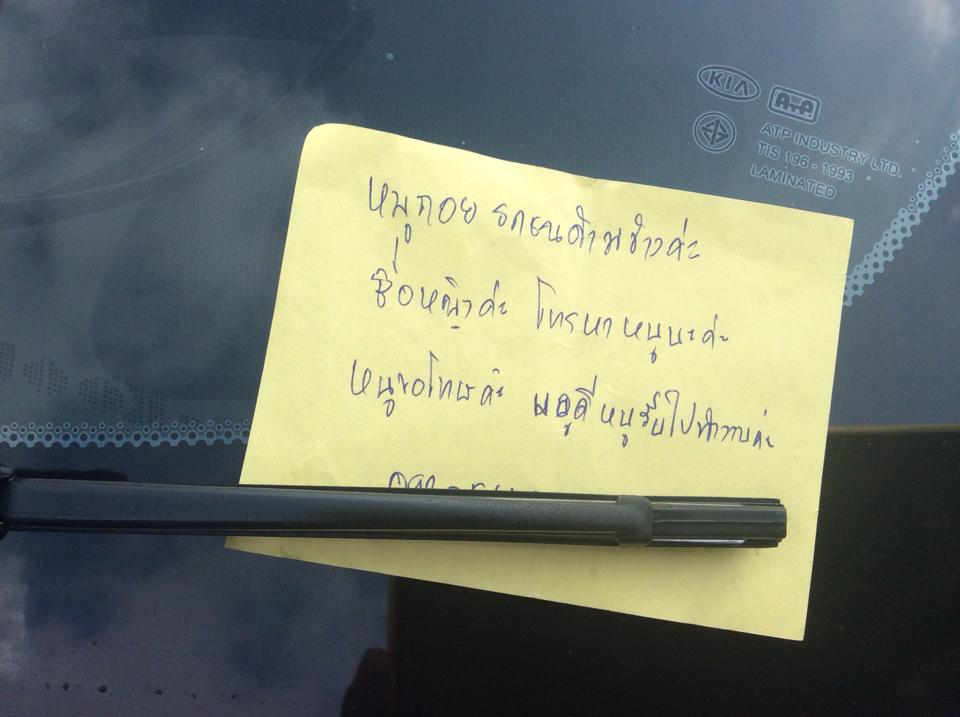 KIA
ATP
ATP INDUSTRY LTD.
TIS 196 - 1993
LAMINATED
หนูถอย รถชนด้านข้างค่ะ
ชื่อหญิงค่ะ โทรหาหนูนะค่ะ
หนูขอโทษค่ะ พอดีหนูรีบไปทำงานค่ะ